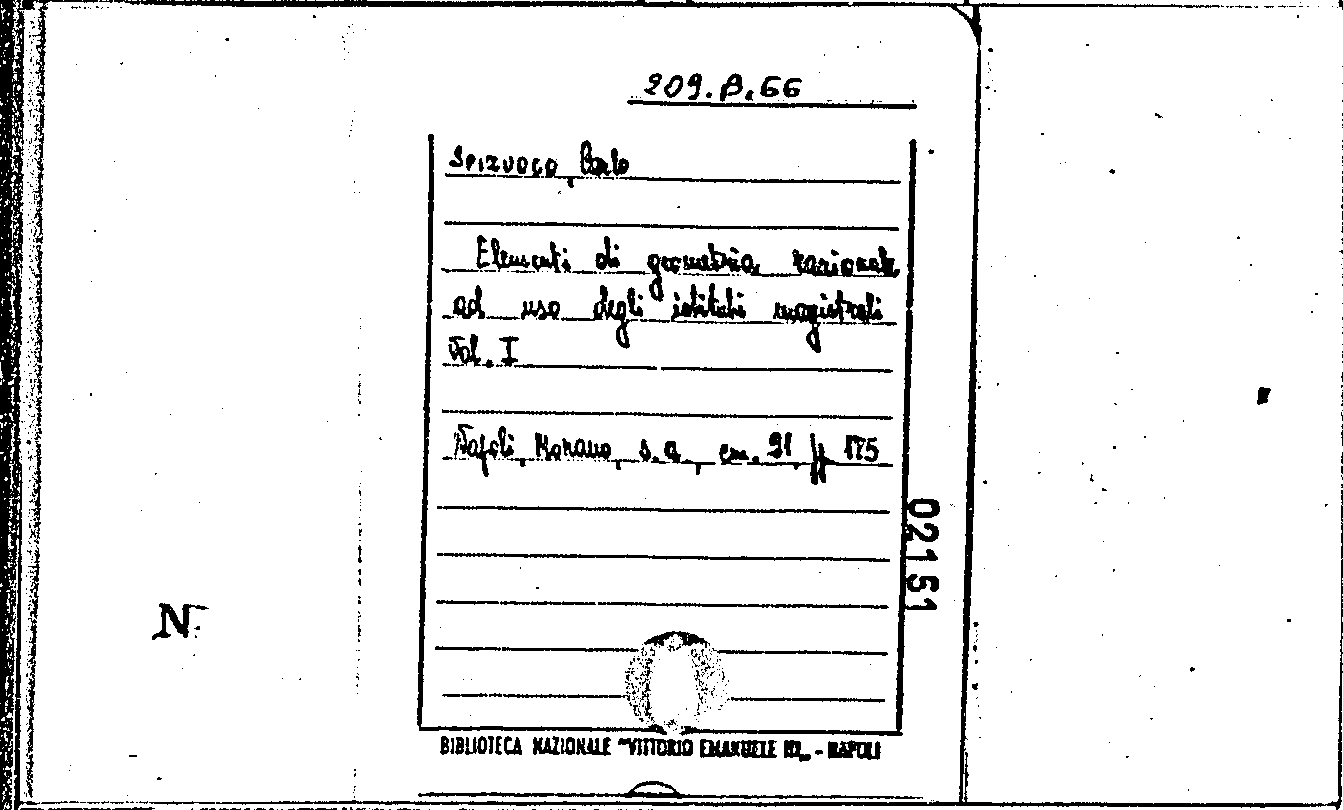 209.B.66
Spizuoco, Carlo
Elementi di geometria razionale
ad uso degli istituti magistrali
Vol. I
Napoli, Morano, s.a., cm. 21, pp. 175
02151
N
BIBLIOTECA NAZIONALE "VITTORIO EMANUELE III„ - NAPOLI